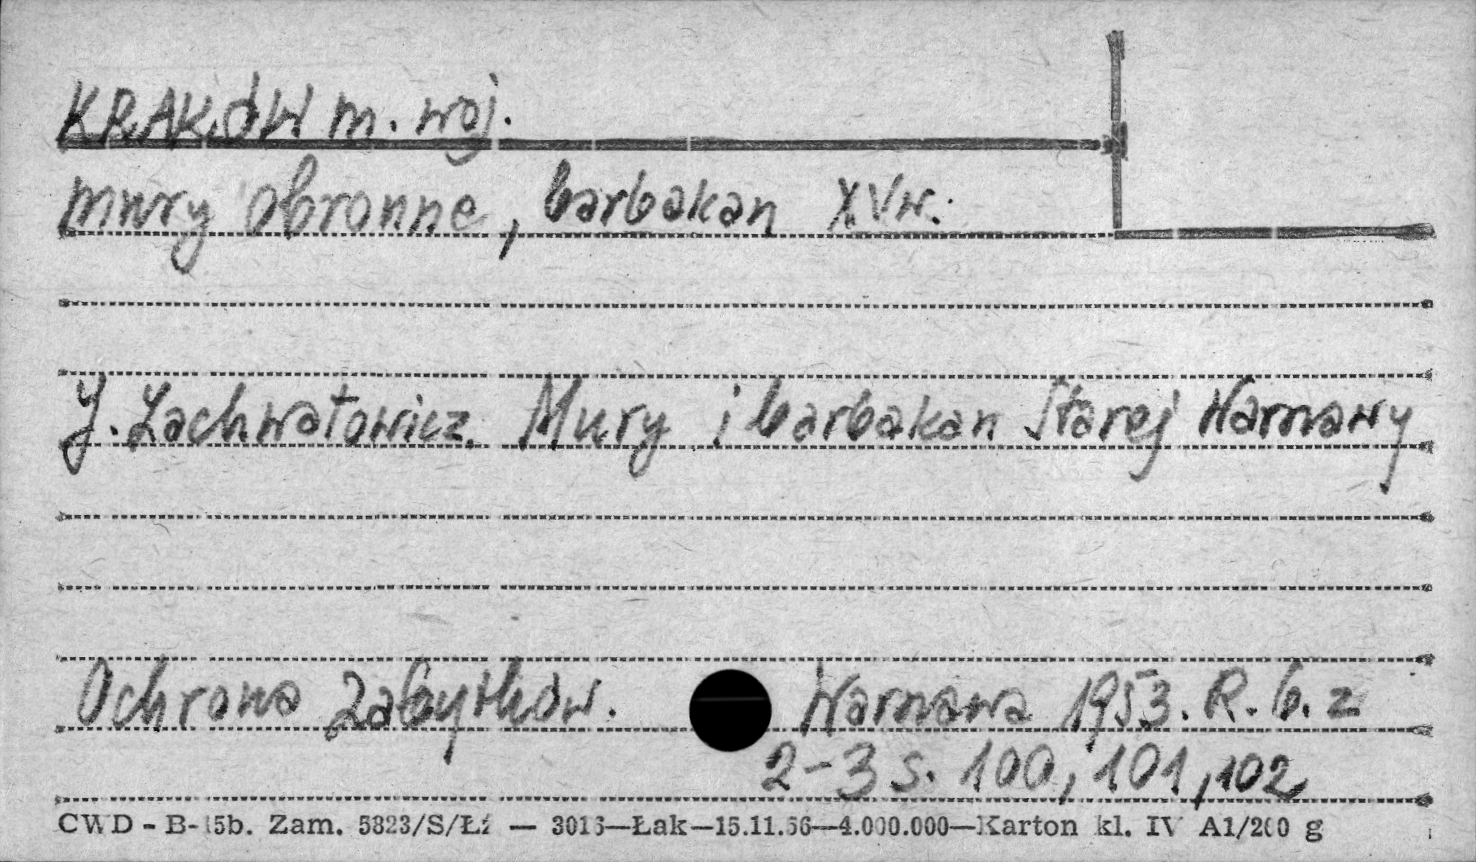 KRAKÓW m. woj.
mury obronne, barbakan XVw.
J. Zachwatowicz. Mury i barbakan Starej Warszawy
Ochrona Zabytków. Warszawa 1953. R. 6. z
2-3 s. 100, 101, 102
CWD - B-15b. Zam. 5823/S/Łź — 3016—Łak—15.11.56—4.000.000—Karton kl. IV A1/200 g